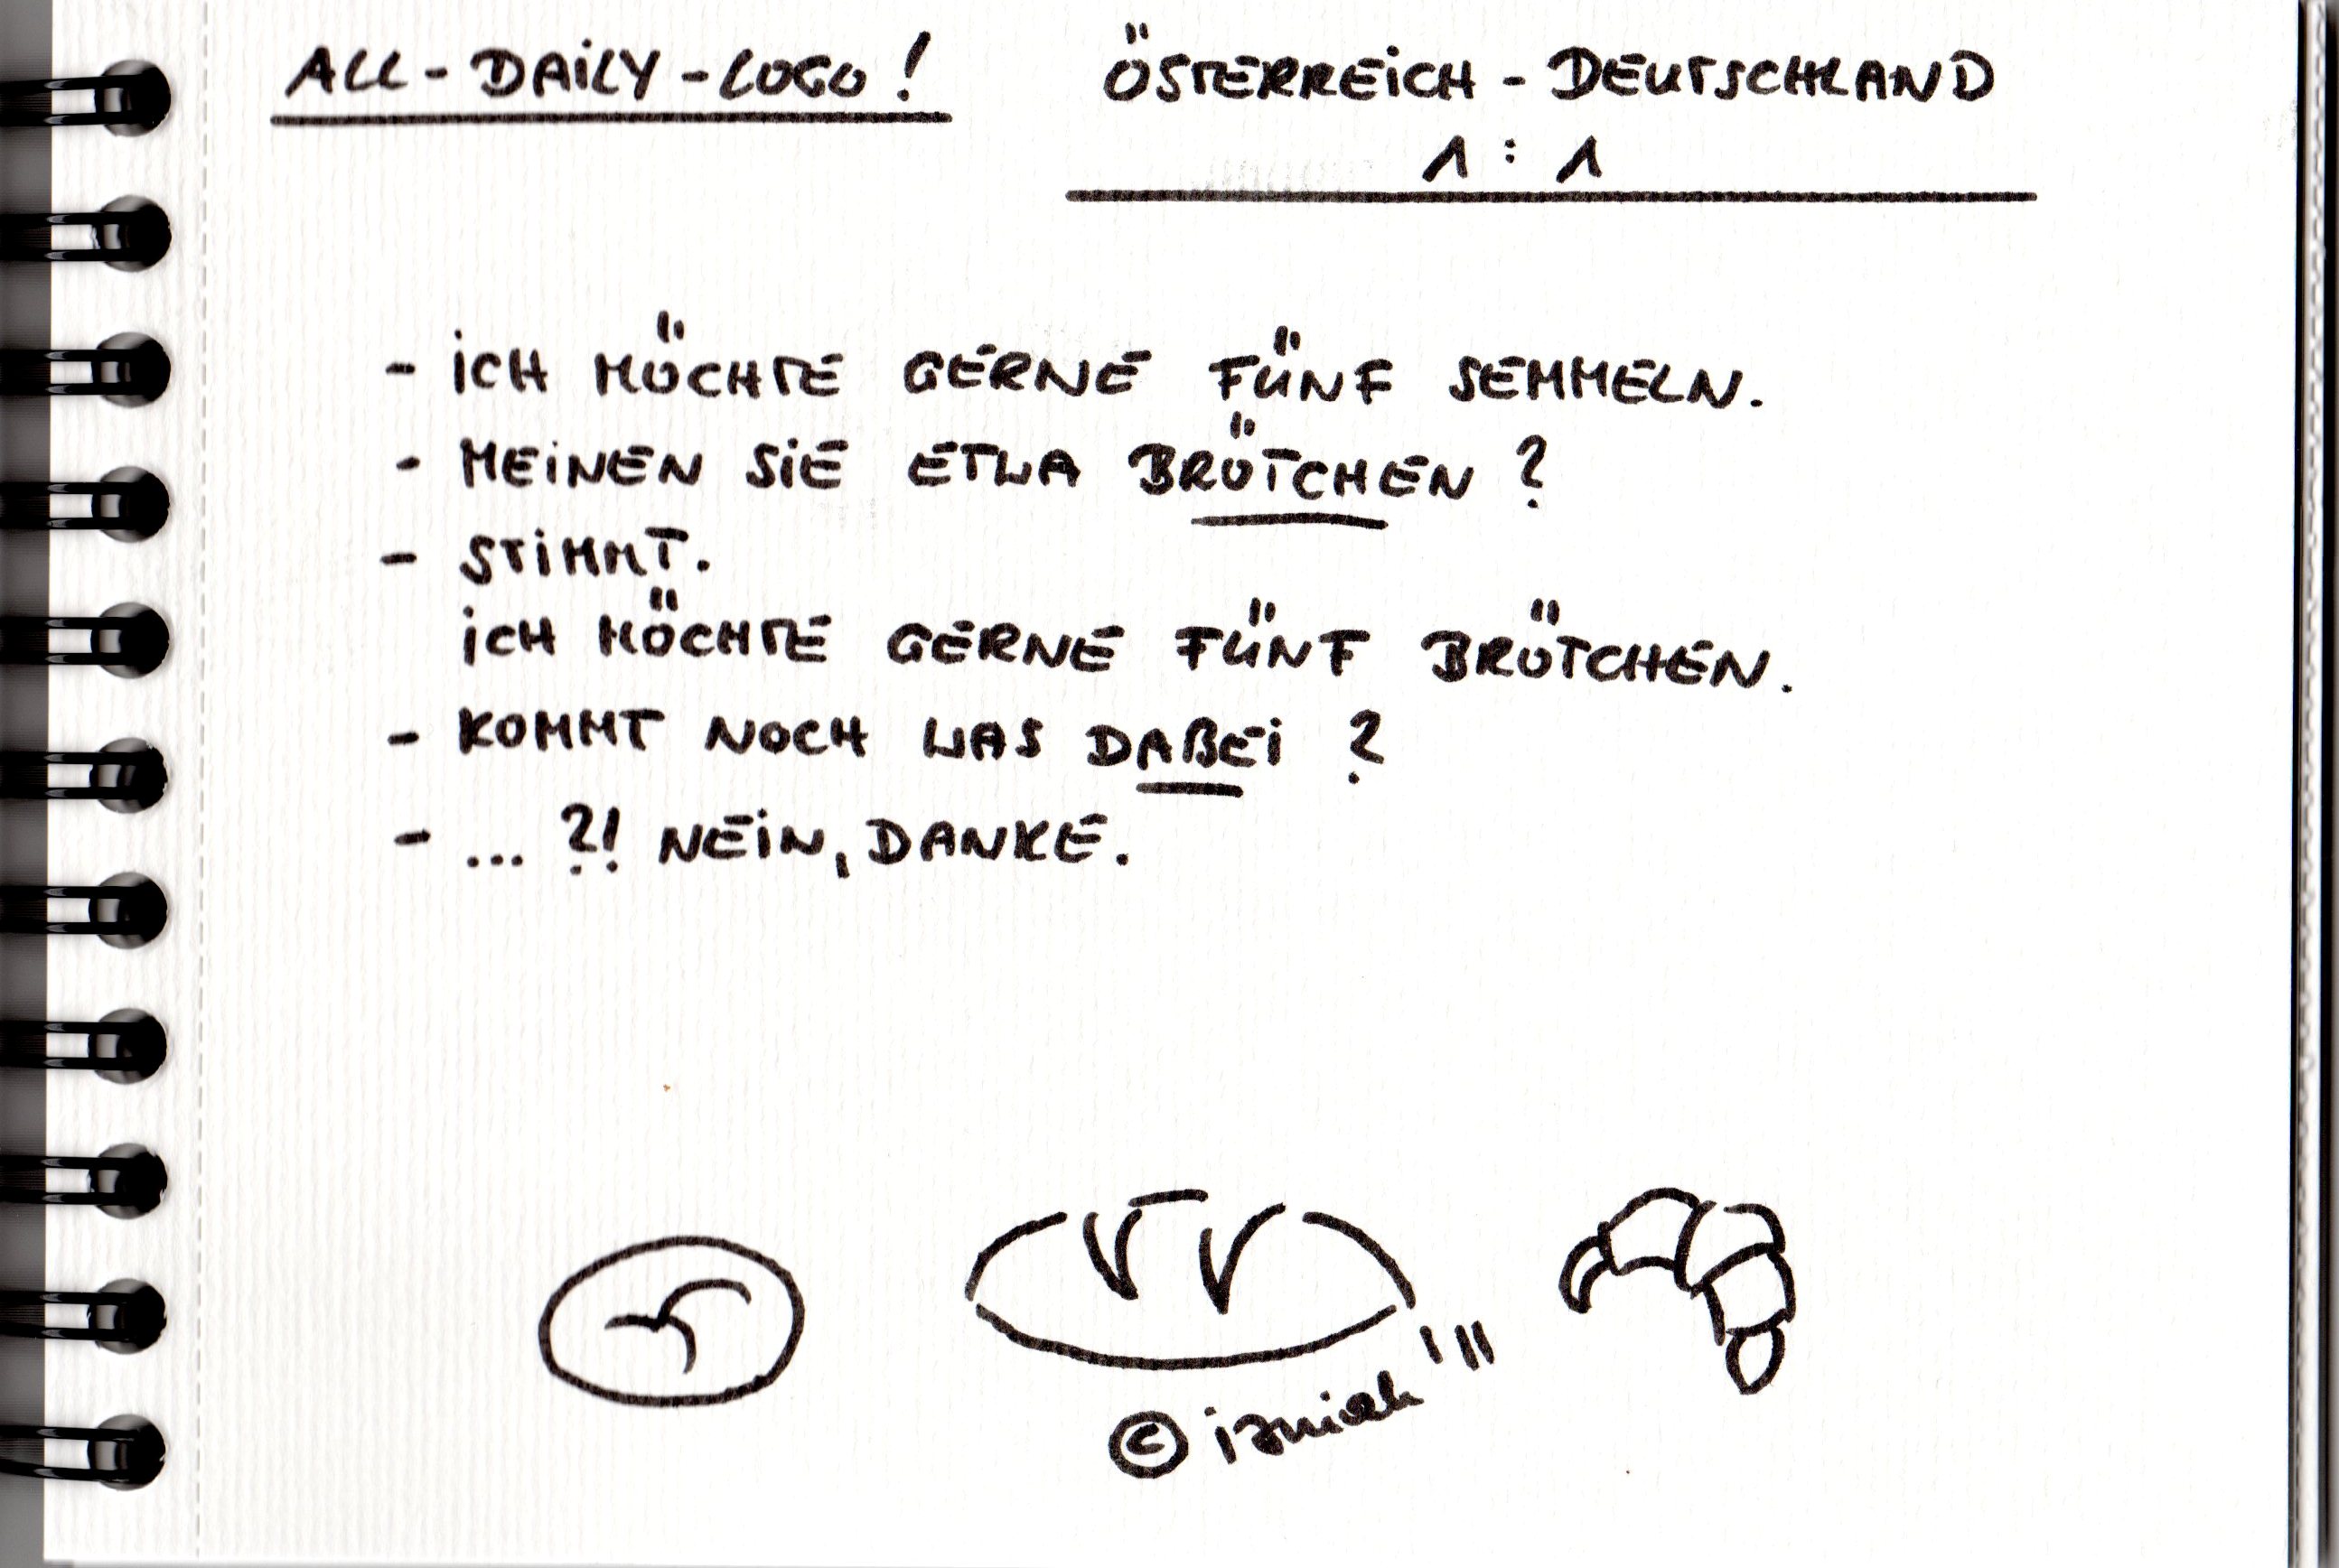 ALL-DAiLY-LOGO!
ÖSTERREiCH - DEUTSCHLAND
1 : 1
- iCH MÖCHTE GERNE FÜNF SEMMELN.
- MEiNEN SiE ETWA BRÖTCHEN ?
- STiMMT.
iCH MÖCHTE GERNE FÜNF BRÖTCHEN.
- KOMMT NOCH WAS DABEi ?
- ... ?! NEiN, DANKE.
© '11